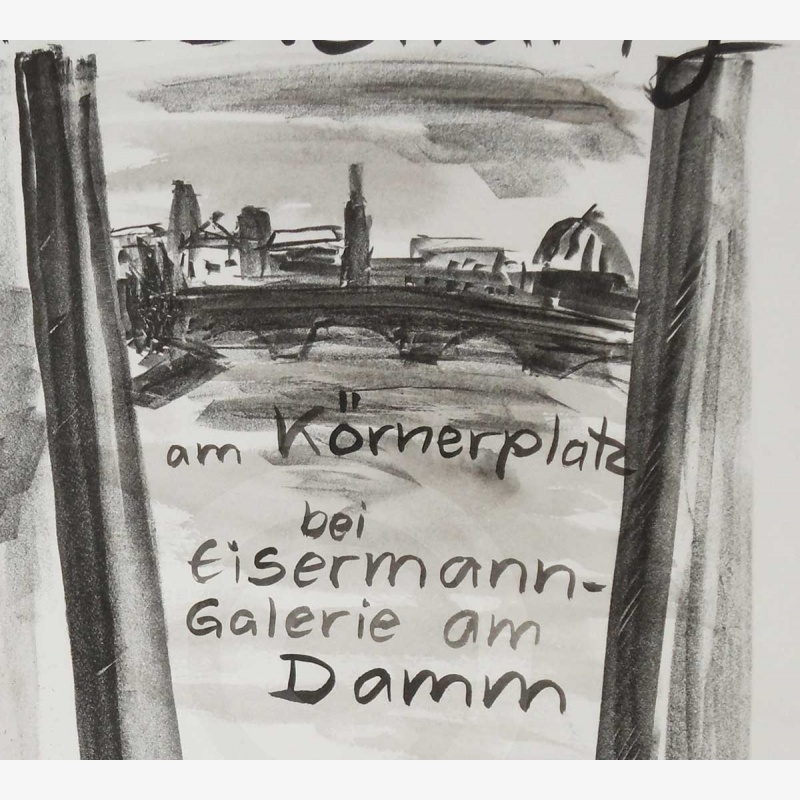 am Körnerplatz
bei
Eisermann-
Galerie am
Damm